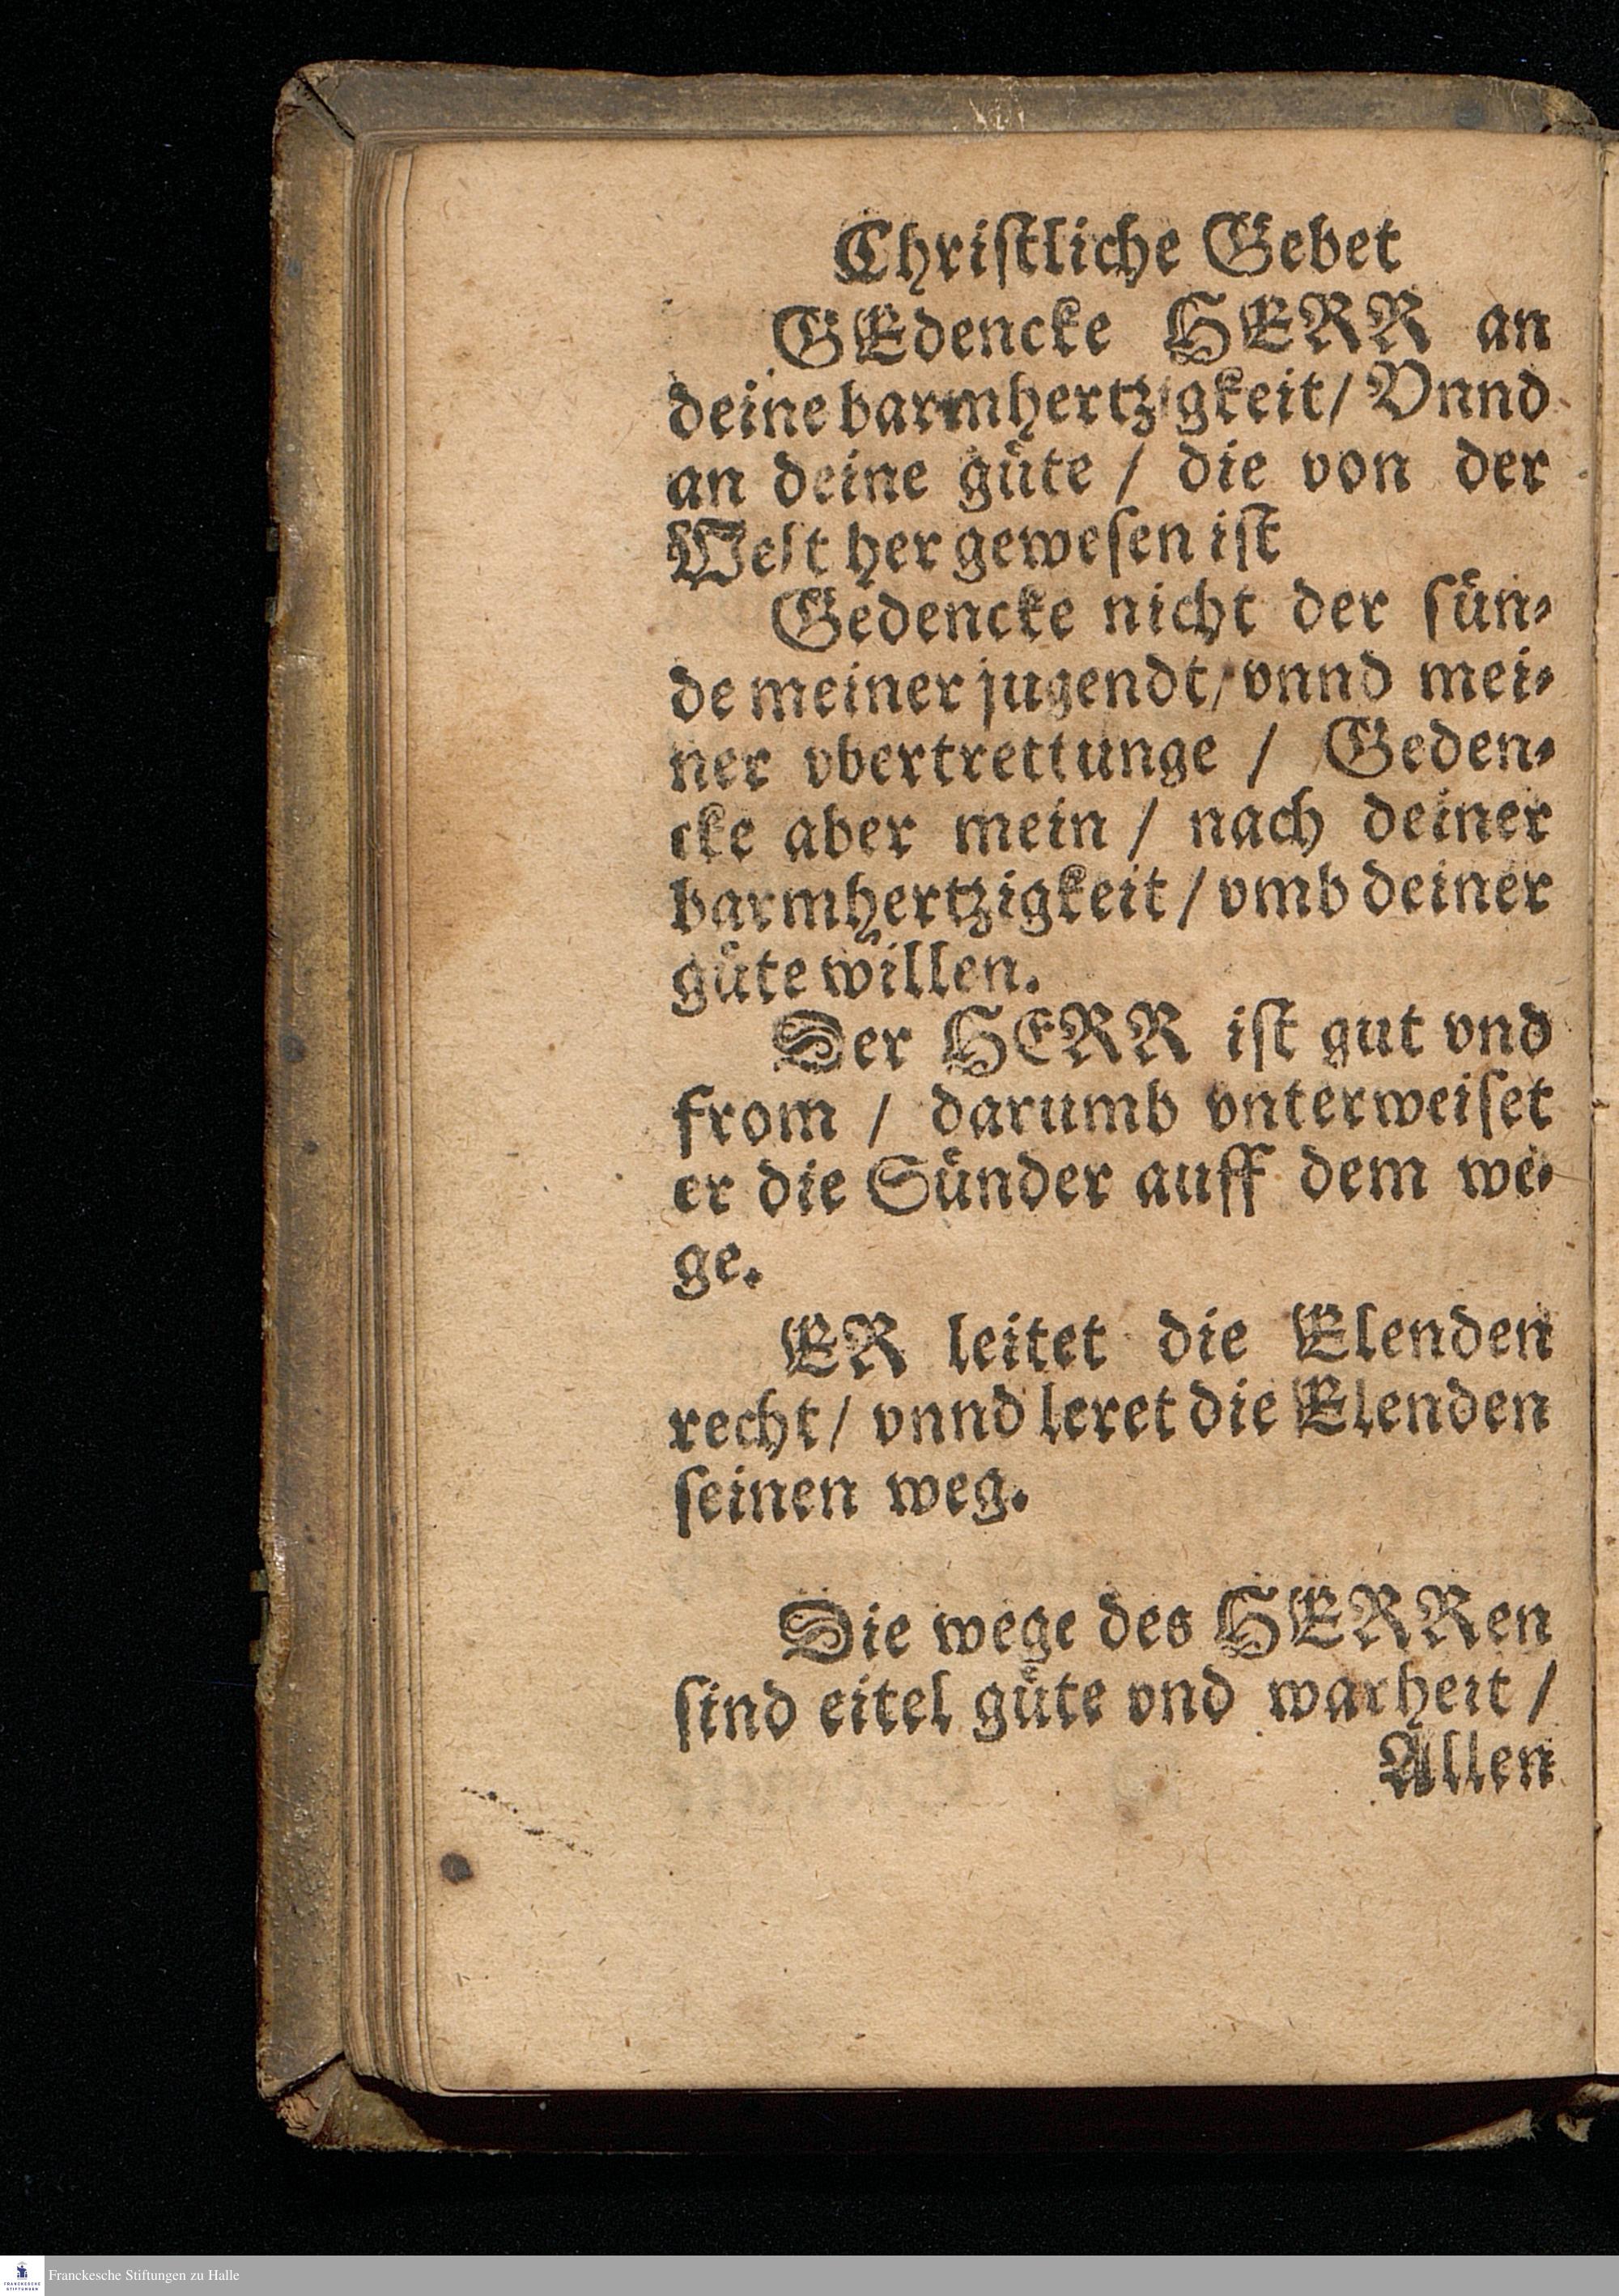 Christliche Gebet
GEdencke HERR an
deine barmhertzigkeit / Vnnd
an deine guͤte / die von der
Welt her gewesen ist
Gedencke nicht der suͤn⸗
de meiner jugendt / vnnd mei⸗
ner vbertrettunge / Geden⸗
cke aber mein / nach deiner
barmhertzigkeit / vmb deiner
guͤte willen.
Der HERR ist gut vnd
from / darumb vnterweiset
er die Suͤnder auff dem we⸗
ge.
ER leitet die Elenden
recht / vnnd leret die Elenden
seinen weg.
Die wege des HERRen
sind eitel guͤte vnd warheit /
Allen
FRANCKESCHE STIFTUNGEN
Franckesche Stiftungen zu Halle